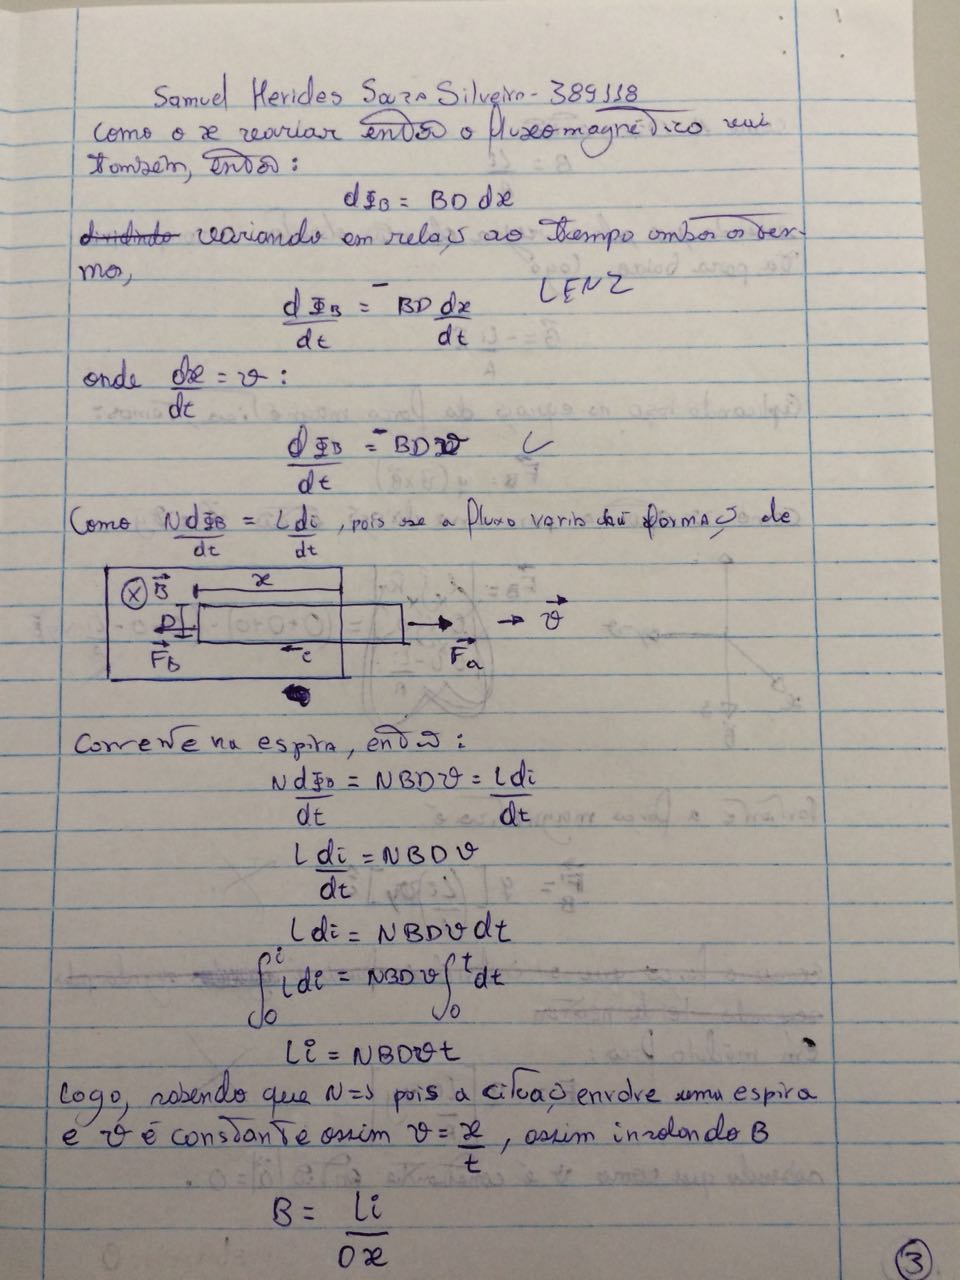 Samuel Herides Souza Silveira - 389118
Como o x variar então o fluxo magnético vai
também, então:
dΦB = BD dx
dividindo variando em relaç ao tempo ambos os ter-
mos,
dΦB/dt = - BD dx/dt LENZ
onde dx/dt = v:
dΦB/dt = - BD v
Como N dΦB/dt = L di/dt , pois se a fluxo varia há formaç de
⊗ B x
D
FB i Fa v
corrente na espira, então:
N dΦB/dt = NBDv = L di/dt
L di/dt = NBDv
L di = NBDv dt
∫₀ⁱ L di = NBDv ∫₀ᵗ dt
Li = NBDvt
Logo, sabendo que N=1 pois a situaç envolve uma espira
e v é constante assim v = x/t , assim isolando B
B = Li/Dx
3